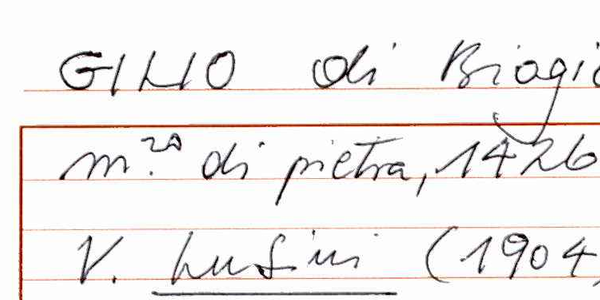 GILIO di Biagio
m.ro di pietra, 1426
V. Lusini (1904)